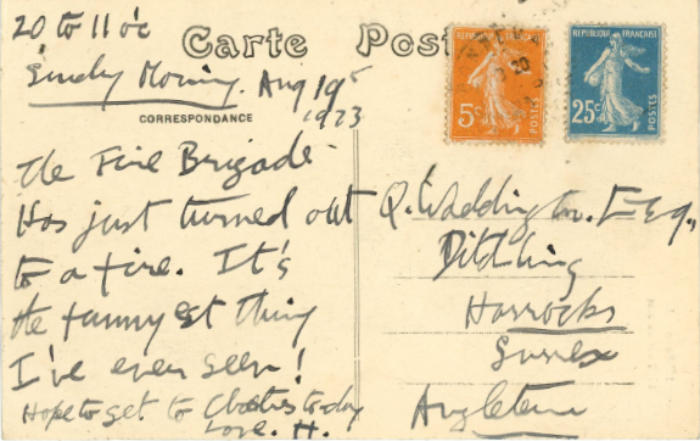 20 to 11 o'c
Carte Post
Sunday Morning. Aug 19th
1923
CORRESPONDANCE
The Fire Brigade
Has just turned out
to a fire. It's
the funnyest thing
I've ever seen!
Hope to get to today
Love. H.
REPUBLIQUE FRANÇAISE
5c
POSTES
REPUBLIQUE FRANÇAISE
25c
POSTES
Q. Waddington. Esq.,
Ditchling
Hassocks
Sussex
Angleterre